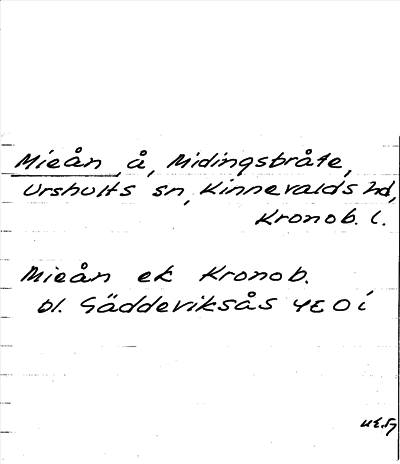 Mieån, å, Midingsbråte,
Urshults sn, Kinnevalds hd,
Kronob. l.
Mieån ek Kronob.
bl. Gäddeviksås 4E0i